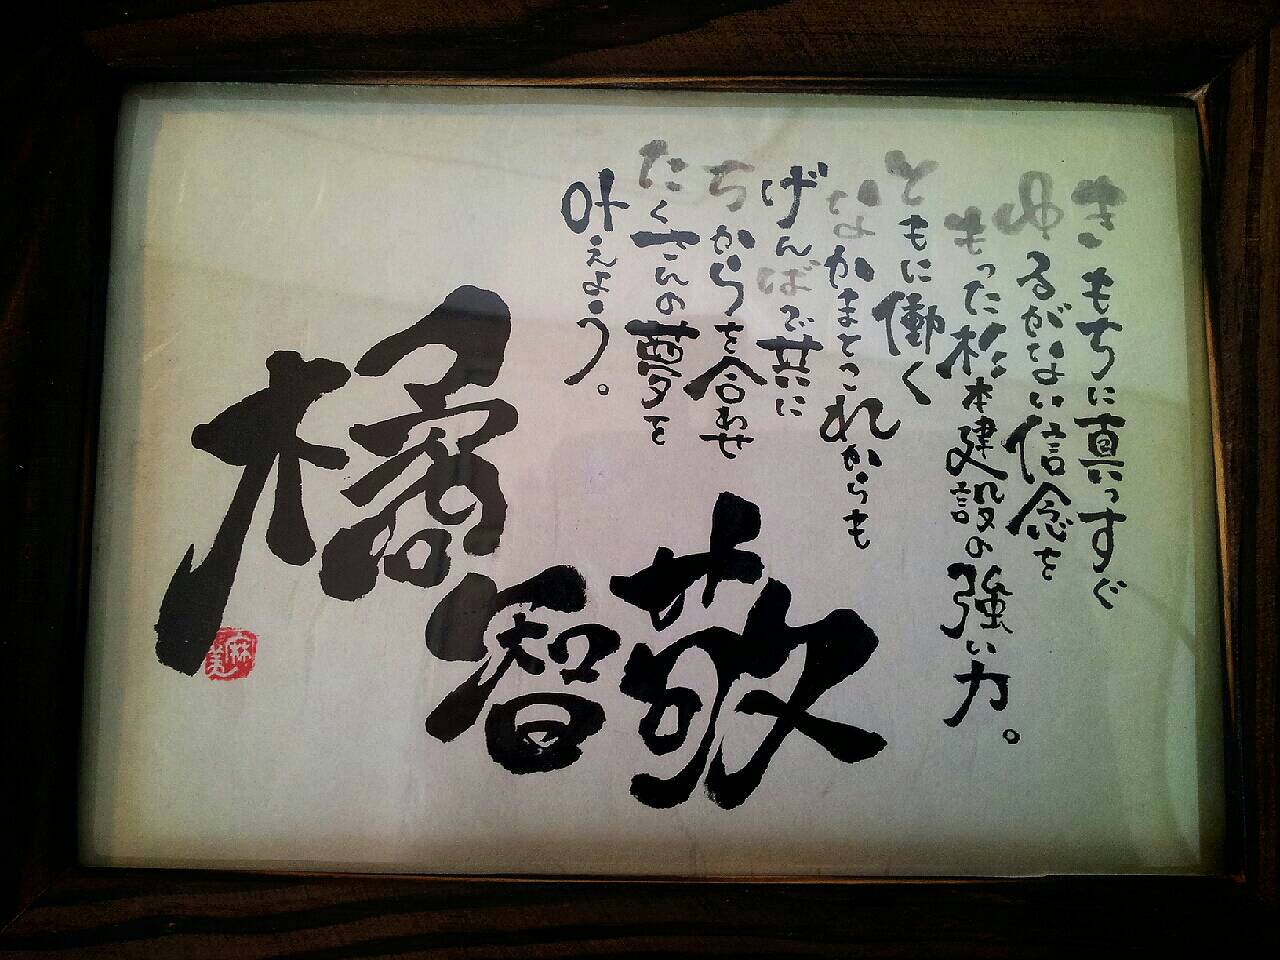 きもちに真っすぐ
ゆるがない信念を
もった杉本建設の強い力。
ともに働く
なかまとこれからも
げんばで共に
ちからを合わせ
たくさんの夢を
叶えよう。
敬
智
橘
麻美